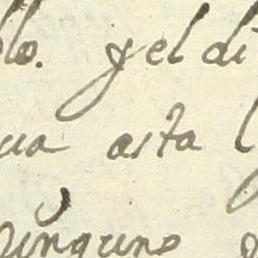 lo. y el di
ua asta l
ninguno